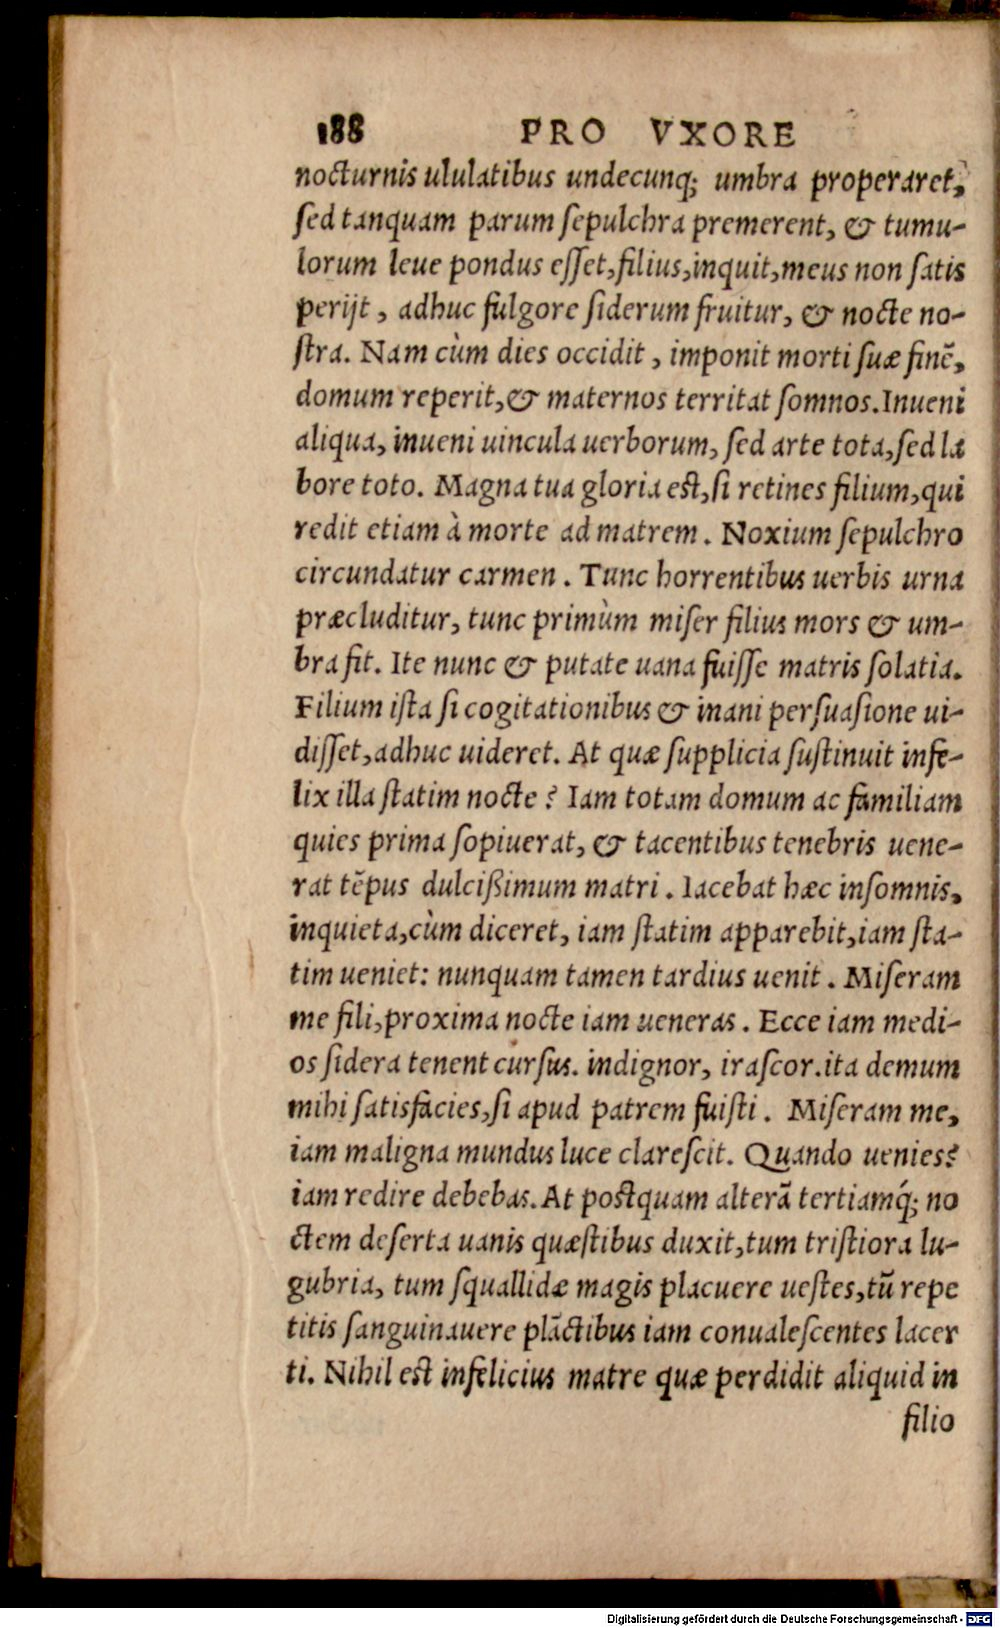 188 PRO VXORE
nocturnis ululatibus undecunq; umbra properaret,
sed tanquam parum sepulchra premerent, & tumu-
lorum leue pondus esset, filius, inquit, meus non satis
perijt, adhuc fulgore siderum fruitur, & nocte no-
stra. Nam cùm dies occidit, imponit morti suæ finẽ,
domum reperit, & maternos territat somnos. Inueni
aliqua, inueni uincula uerborum, sed arte tota, sed la
bore toto. Magna tua gloria est, si retines filium, qui
redit etiam à morte ad matrem. Noxium sepulchro
circundatur carmen. Tunc horrentibus uerbis urna
præcluditur, tunc primùm miser filius mors & um-
bra fit. Ite nunc & putate uana fuisse matris solatia.
Filium ista si cogitationibus & inani persuasione ui-
disset, adhuc uideret. At quæ supplicia sustinuit infe-
lix illa statim nocte? Iam totam domum ac familiam
quies prima sopiuerat, & tacentibus tenebris uene-
rat tẽpus dulcißimum matri. Iacebat hæc insomnis,
inquieta, cùm diceret, iam statim apparebit, iam sta-
tim ueniet: nunquam tamen tardius uenit. Miseram
me fili, proxima nocte iam ueneras. Ecce iam medi-
os sidera tenent cursus. indignor, irascor. ita demum
mihi satisfacies, si apud patrem fuisti. Miseram me,
iam maligna mundus luce clarescit. Quando uenies?
iam redire debebas. At postquam alterã tertiamq́; no
ctem deserta uanis quæstibus duxit, tum tristiora lu-
gubria, tum squallidæ magis placuere uestes, tũ repe
titis sanguinauere plãctibus iam conualescentes lacer
ti. Nihil est infelicius matre quæ perdidit aliquid in
filio
Digitalisierung gefördert durch die Deutsche Forschungsgemeinschaft - DFG